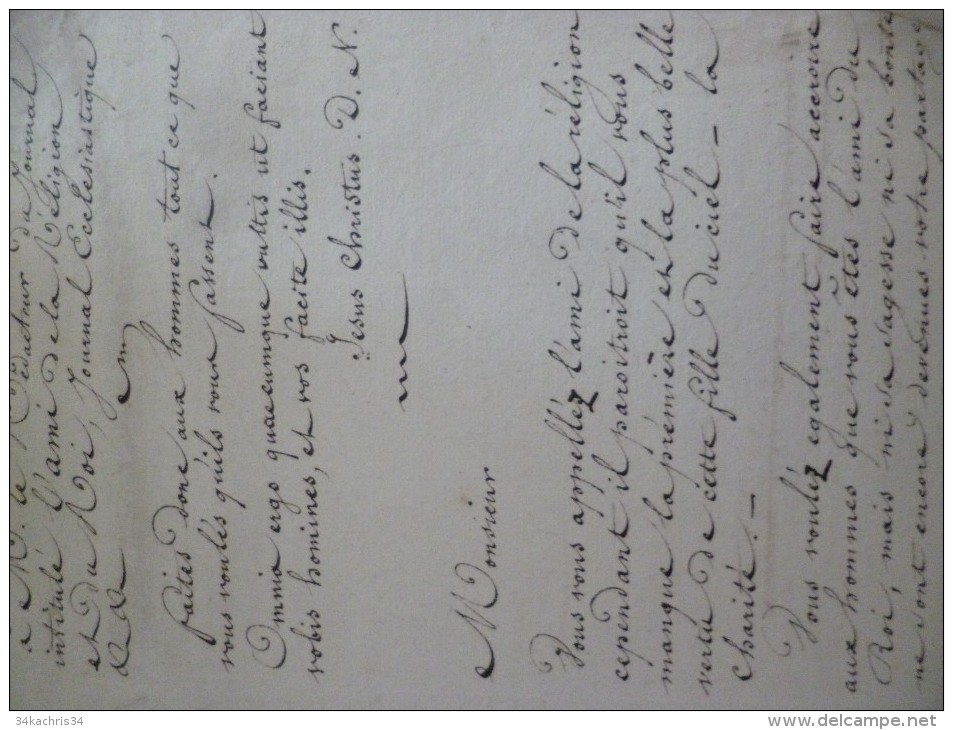 a M. le Rédacteur du Journal
intitulé l'ami de la Réligion
et du Roi, Journal Ecclésiastique
&&
faites donc aux hommes tout ce que
vous voulés qu'ils vous fassent.
Omnia ergo quaecumque vultis ut faciant
vobis homines, et vos facite illis.
Jesus Christus. D. N.
Monsieur
Vous vous appelléz l'ami de la réligion
cependant il paroitroit qu'il vous
manque la prémière et la plus belle
vertu de cette fille du ciél – la
charité. –
Vous vouléz egalement faire accroire
aux hommes que vous êtes l'ami du
Roi, mais ni sa sagesse ni sa bonté
ne sont encore devenues votre partage
34kachris34
www.delcampe.net